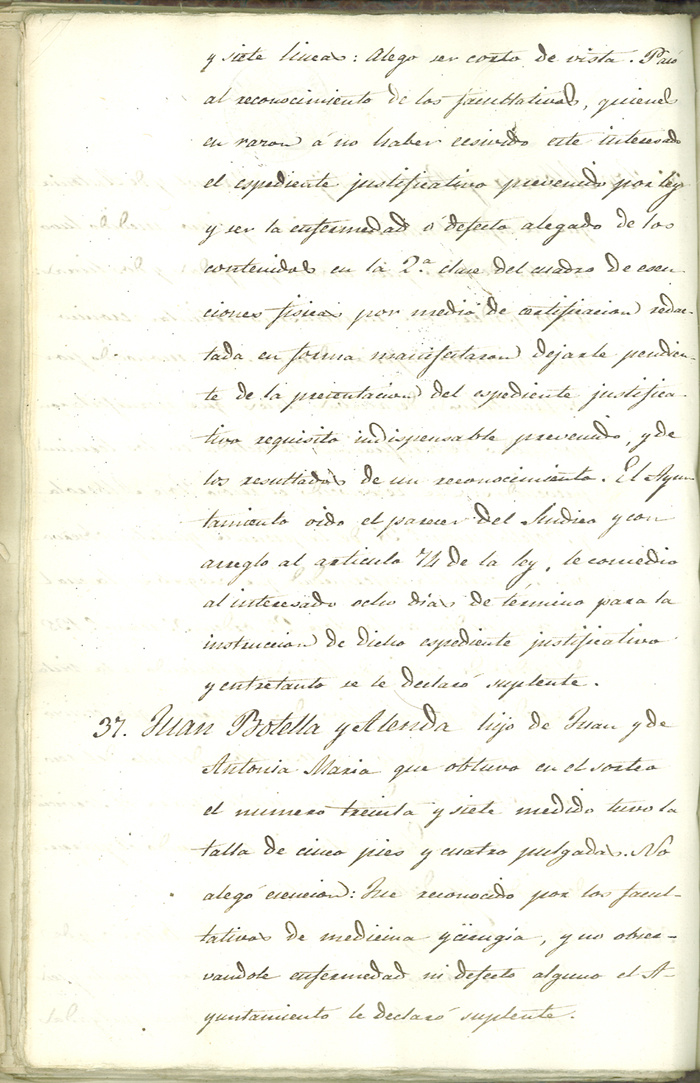 y siete lineas: Alego ser corto de vista. Pasó
al reconocimiento de los facultativos, quienes
en razon á no haber ecsivido este interesado
el espediente justificativo prevenido por ley
y ser la enfermedad ó defecto alegado de los
contenidos en la 2.ª clase del cuadro de esen-
ciones fisicas por medio de certificacion redac-
tada en forma manifestaron dejarle pendien-
te de la presentacion del espediente justifica-
tivo requisito indispensable prevenido, y de
los resultados de un reconocimiento. El Ayun
tamiento oido el parecer del Sindico y con
arreglo al articulo 74 de la ley, le concedio
al interesado ocho dias de termino para la
instruccion de dicho espediente justificativo
y entretanto se le declaró suplente.
37. Juan Botella y Alenda hijo de Juan y de
Antonia Maria que obtuvo en el sorteo
el numero treinta y siete medido tuvo la
talla de cinco pies y cuatro pulgadas. No
alegó esencion: Fue reconocido por los facul-
tativos de medicina y cirugia, y no obser-
vandole enfermedad ni defecto alguno el A-
yuntamiento le declaró suplente.